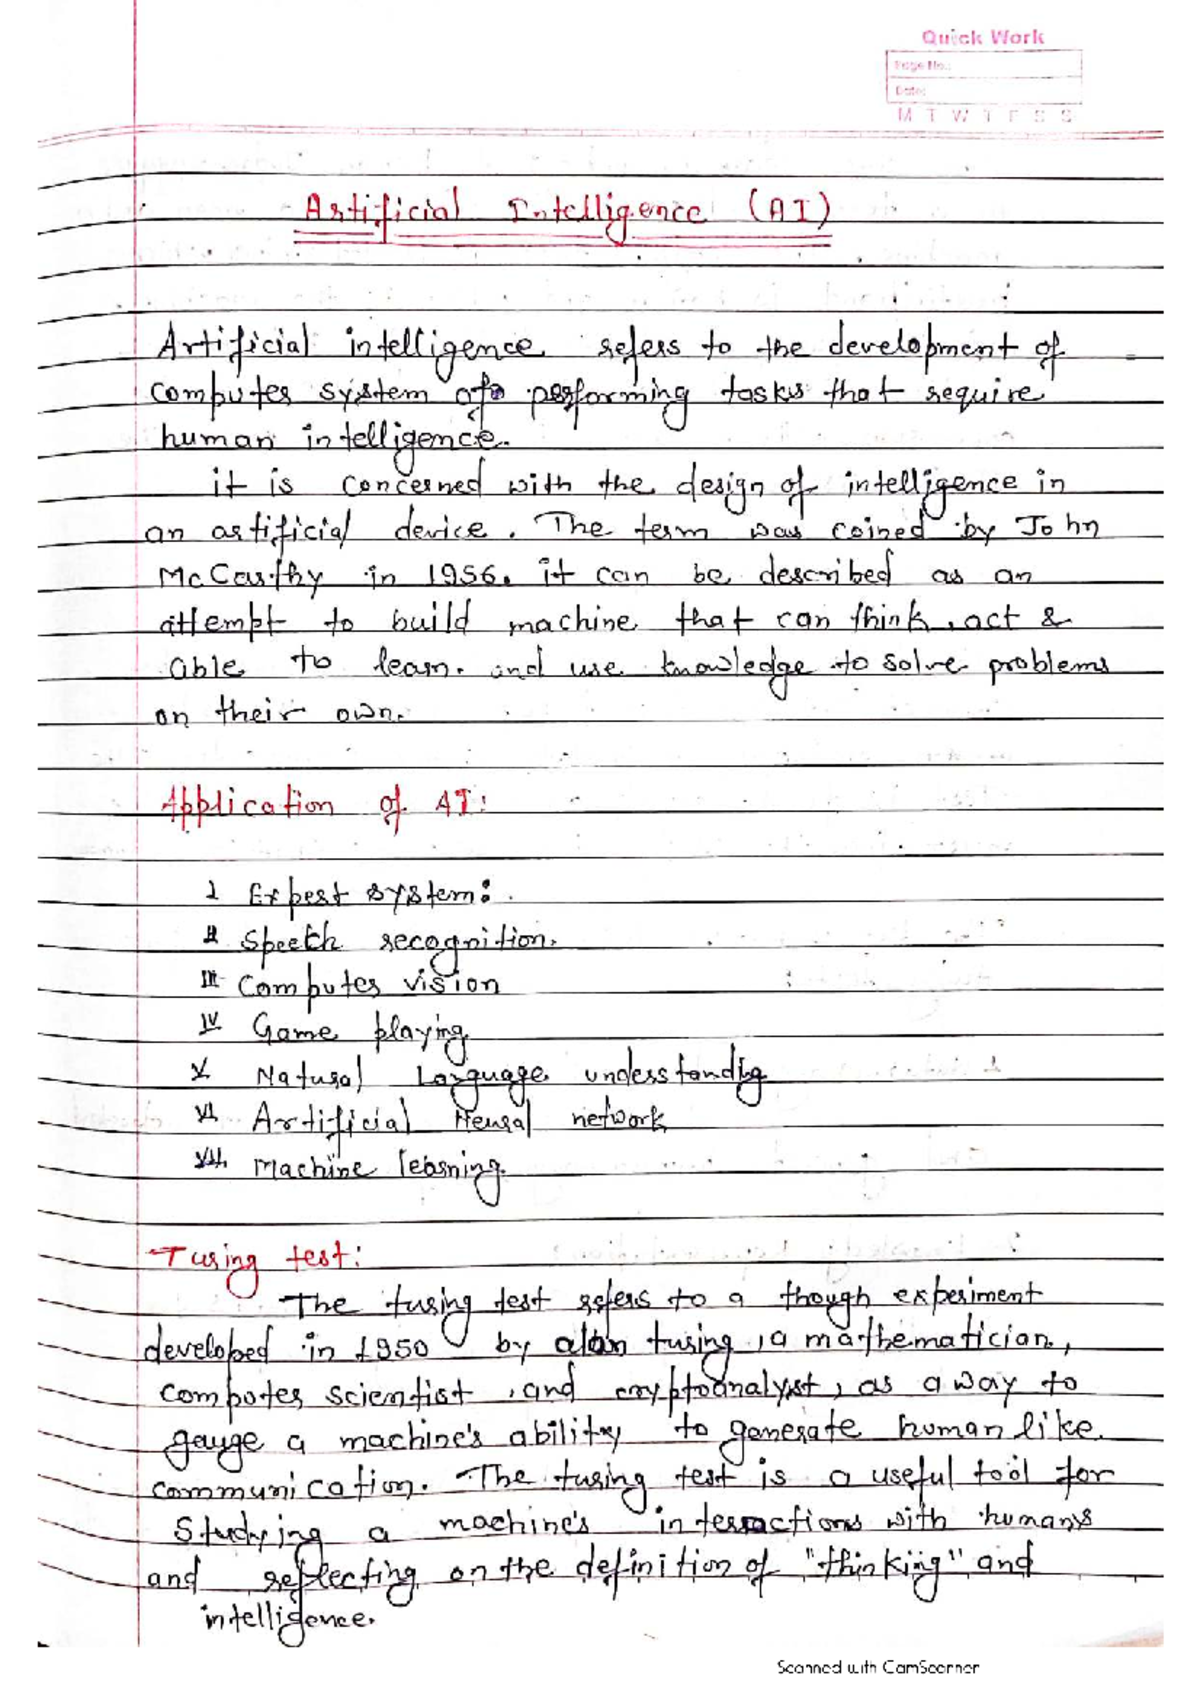 Quick Work
Page No.:
Date:
M T W T F S S
Artificial Intelligence (AI)
Artificial intelligence refers to the development of
computer system of performing tasks that require
human intelligence.
it is concerned with the design of intelligence in
an artificial device. The term was coined by John
McCarthy in 1956. it can be described as an
attempt to build machine that can think, act &
able to learn. and use knowledge to solve problems
on their own.
Application of AI:
I Expert system:
II Speech recognition.
III Computer vision
IV Game playing
V Natural Language understanding
VI Artificial Neural network
VII. Machine learning.
Turing test:
The turing test refers to a though experiment
developed in 1950 by alan turing, a mathematician,
computer scientist, and cryptoanalyst, as a way to
gauge a machine's ability to generate human like
communication. The turing test is a useful tool for
Studying a machine's interactions with humans
and reflecting on the definition of "thinking" and
intelligence.
Scanned with CamScanner